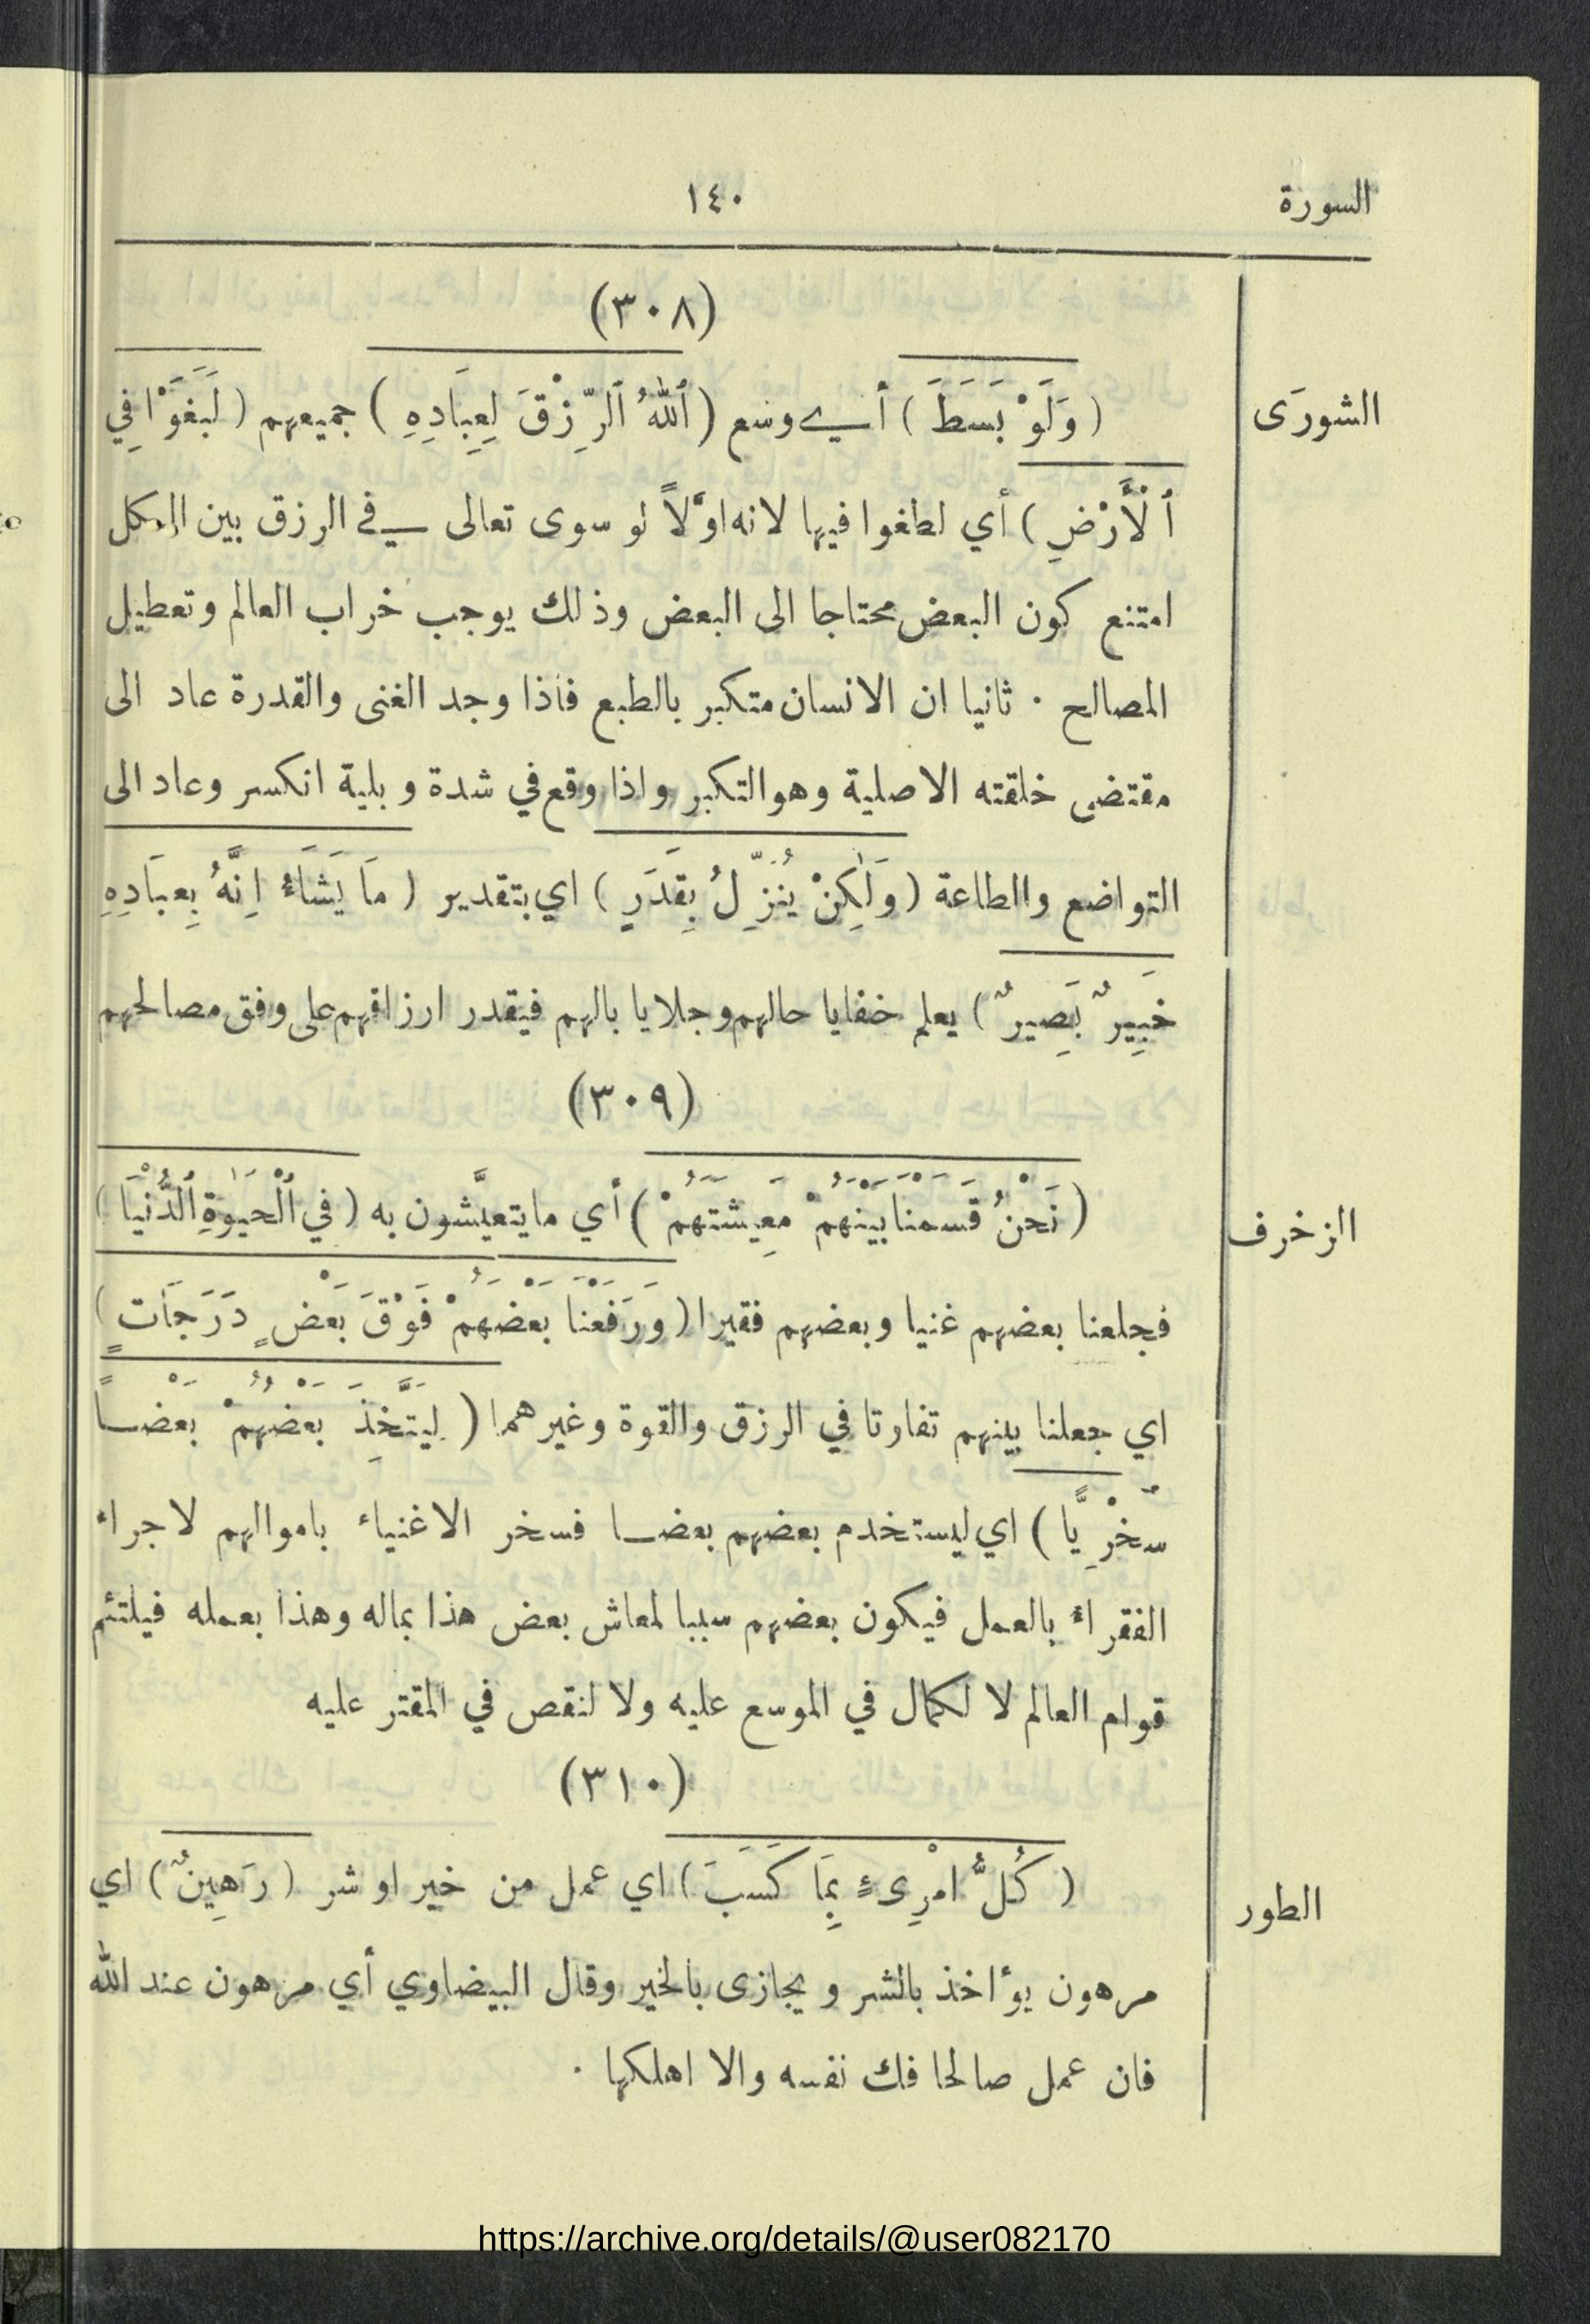 السورة ١٤٠
(٣٠٨)
الشورَى
(وَلَوْ بَسَطَ) أي وسع (ٱللهُ ٱلرِّزْقَ لِعِبَادِهِ) جميعهم (لَبَغَوْا فِي
ٱلْأَرْضِ) أي لطغوا فيها لانه اوَّلاً لو سوى تعالى في الرزق بين الكل
امتنع كون البعض محتاجا الى البعض وذلك يوجب خراب العالم وتعطيل
المصالح . ثانيا ان الانسان متكبر بالطبع فاذا وجد الغنى والقدرة عاد الى
مقتضى خلقته الاصلية وهو التكبر واذا وقع في شدة وبلية انكسر وعاد الى
التواضع والطاعة (وَلَٰكِنْ يُنَزِّلُ بِقَدَرٍ) اي بتقدير (مَا يَشَاءُ اِنَّهُ بِعِبَادِهِ
خَبِيرٌ بَصِيرٌ) يعلم خفايا حالهم وجلايا بالهم فيقدر ارزاقهم على وفق مصالحهم
(٣٠٩)
الزخرف
(نَحْنُ قَسَمْنَا بَيْنَهُمْ مَعِيشَتَهُمْ) أي ما يتعيَّشون به (في ٱلْحَيَوٰةِ ٱلدُّنْيَا)
فجعلنا بعضهم غنيا وبعضهم فقيرا (وَرَفَعْنَا بَعْضَهُمْ فَوْقَ بَعْضٍ دَرَجَاتٍ)
اي جعلنا بينهم تفارتا في الرزق والقوة وغيرهما (لِيَتَّخِذَ بَعْضُهُمْ بَعْضاً
سُخْرِيًّا) اي ليستخدم بعضهم بعضا فسخر الاغنياء باموالهم لاجراء
الفقراء بالعمل فيكون بعضهم سببا لمعاش بعض هذا بماله وهذا بعمله فيلتئم
قوام العالم لا لكمال في الموسع عليه ولا لنقص في المقتر عليه
(٣١٠)
الطور
(كُلُّ امْرِىءٍ بِمَا كَسَبَ) اي عمل من خير او شر (رَهِينٌ) اي
مرهون يؤاخذ بالشر ويجازى بالخير وقال البيضاوي أي مرهون عند الله
فان عمل صالحا فك نفسه والا اهلكها .
https://archive.org/details/@user082170